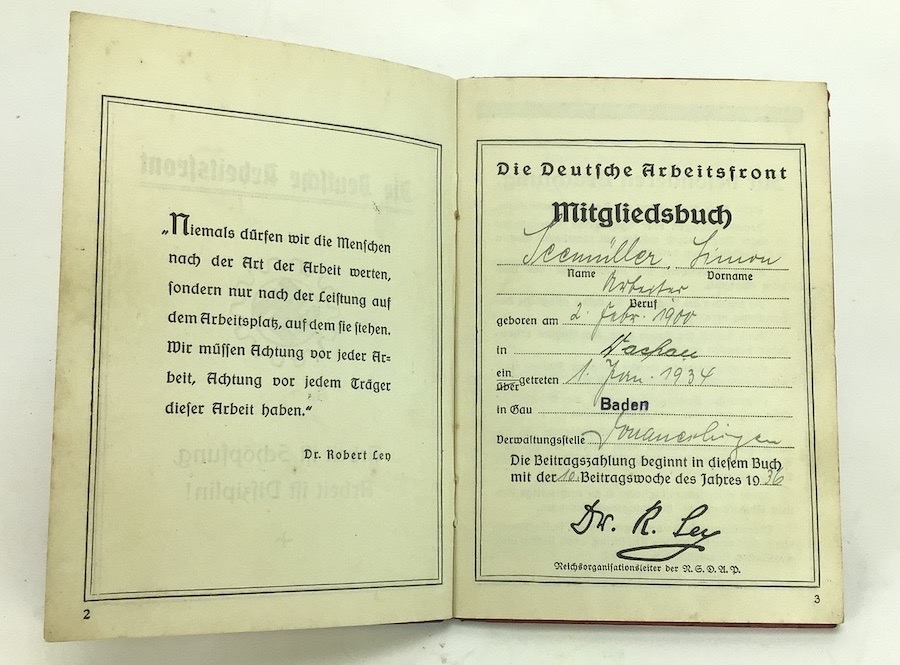 „Niemals dürfen wir die Menschen
nach der Art der Arbeit werten,
sondern nur nach der Leistung auf
dem Arbeitsplatz, auf dem sie stehen.
Wir müssen Achtung vor jeder Ar=
beit, Achtung vor jedem Träger
dieser Arbeit haben.“
Dr. Robert Ley
2
Die Deutsche Arbeitsfront
Mitgliedsbuch
Seemüller, Simon
Name Vorname
Arbeiter
Beruf
geboren am 2. Febr. 1900
in Dachau
ein
über getreten 1. Jan. 1934
in Gau Baden
Verwaltungsstelle Donaueschingen
Die Beitragszahlung beginnt in diesem Buch
mit der 10. Beitragswoche des Jahres 1936
Dr. R. Ley
Reichsorganisationsleiter der N.S.D.A.P.
3